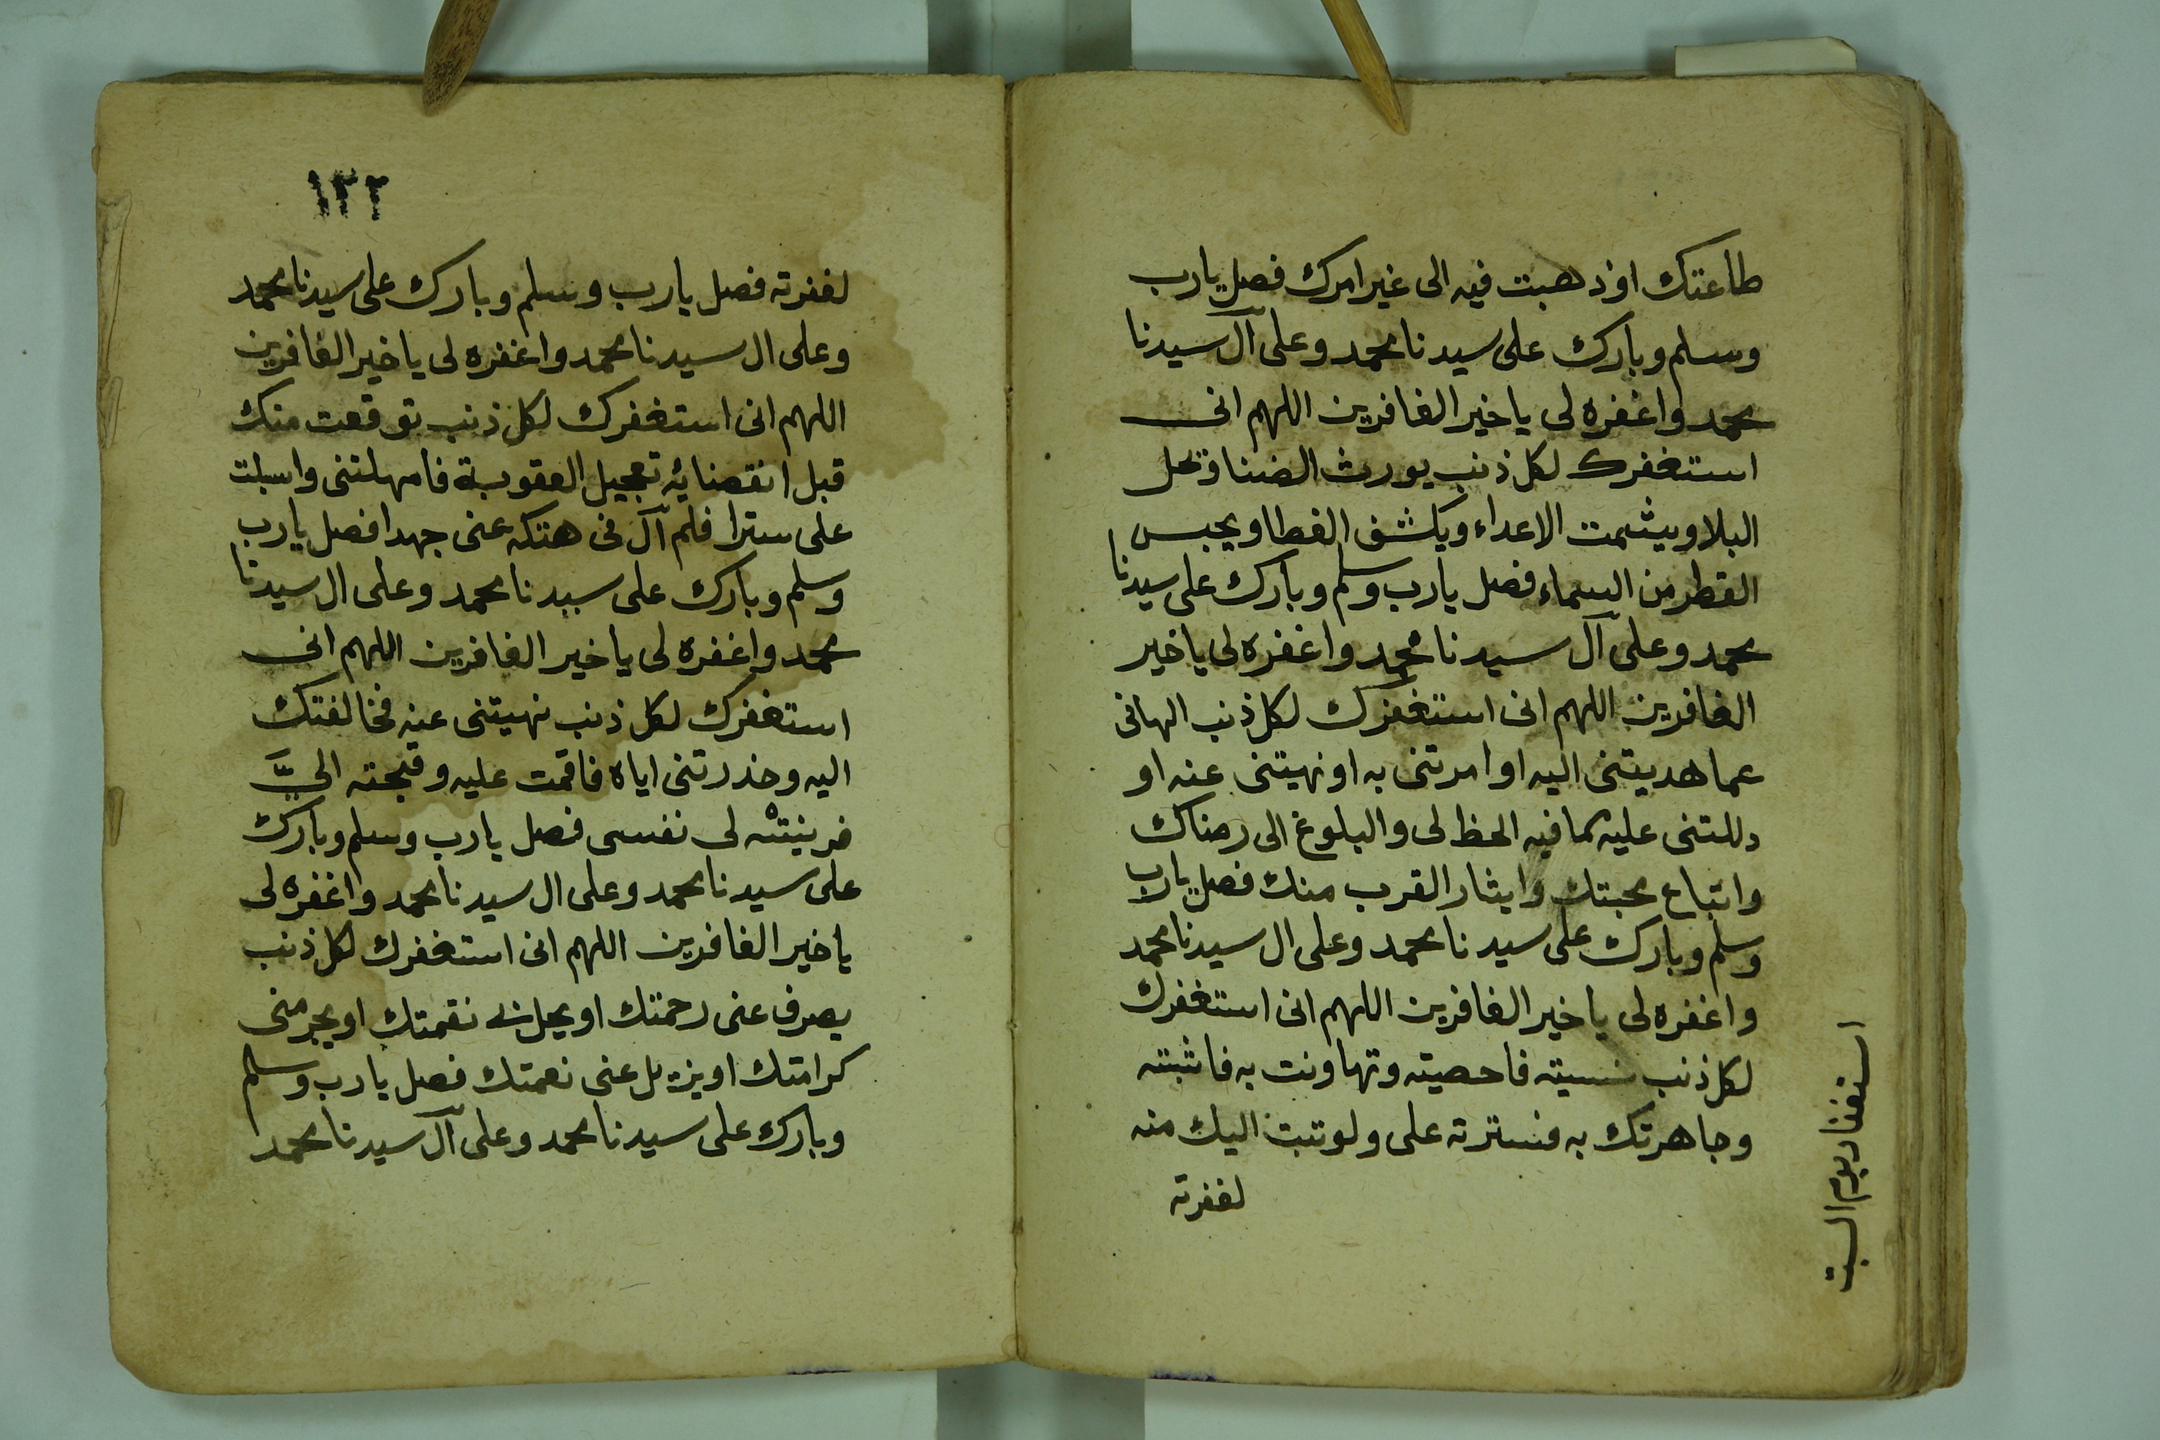 طاعتك اوذهبت فيه الى غير امرك فصل يارب
وسلم وبارك على سيدنا محمد وعلى آل سيدنا
محمد واغفره لى ياخير الغافرين اللهم انى
استغفرك لكل ذنب يورث الضنا ويحل
البلا ويشمت الاعداء ويكشف الغطا ويحبس
القطر من السماء فصل يارب وسلم وبارك على سيدنا
محمد وعلى آل سيدنا محمد واغفره لى ياخير
الغافرين اللهم انى استغفرك لكل ذنب الهانى
عما هديتنى اليه او امرتنى به او نهيتنى عنه او
دللتنى عليه مما فيه الحظ لى والبلوغ الى رضاك
واتباع محبتك وايثار القرب منك فصل يارب
وسلم وبارك على سيدنا محمد وعلى ال سيدنا محمد
واغفره لى ياخير الغافرين اللهم انى استغفرك
لكل ذنب نسيته فاحصيته وتهاونت به فاثبته
وجاهرتك به فسترته على ولو تبت اليك منه
لغفرته
استغفار يوم السبت
١٢٢
لغفرته فصل يارب وسلم وبارك على سيدنا محمد
وعلى ال سيدنا محمد واغفره لى ياخير الغافرين
اللهم انى استغفرك لكل ذنب توقعت منك
قبل انقضائه تعجيل العقوبة فامهلتنى واسبلت
على سترا فلم آل فى هتكه عنى جهدا فصل يارب
وسلم وبارك على سيدنا محمد وعلى ال سيدنا
محمد واغفره لى ياخير الغافرين اللهم انى
استغفرك لكل ذنب نهيتنى عنه فخالفتك
اليه وحذرتنى اياه فاقمت عليه وقبحته الىَّ
فزينته لى نفسى فصل يارب وسلم وبارك
على سيدنا محمد وعلى ال سيدنا محمد واغفره لى
ياخير الغافرين اللهم انى استغفرك لكل ذنب
يصرف عنى رحمتك او يحل بى نقمتك او يحرمنى
كرامتك او يزيل عنى نعمتك فصل يارب وسلم
وبارك على سيدنا محمد وعلى آل سيدنا محمد